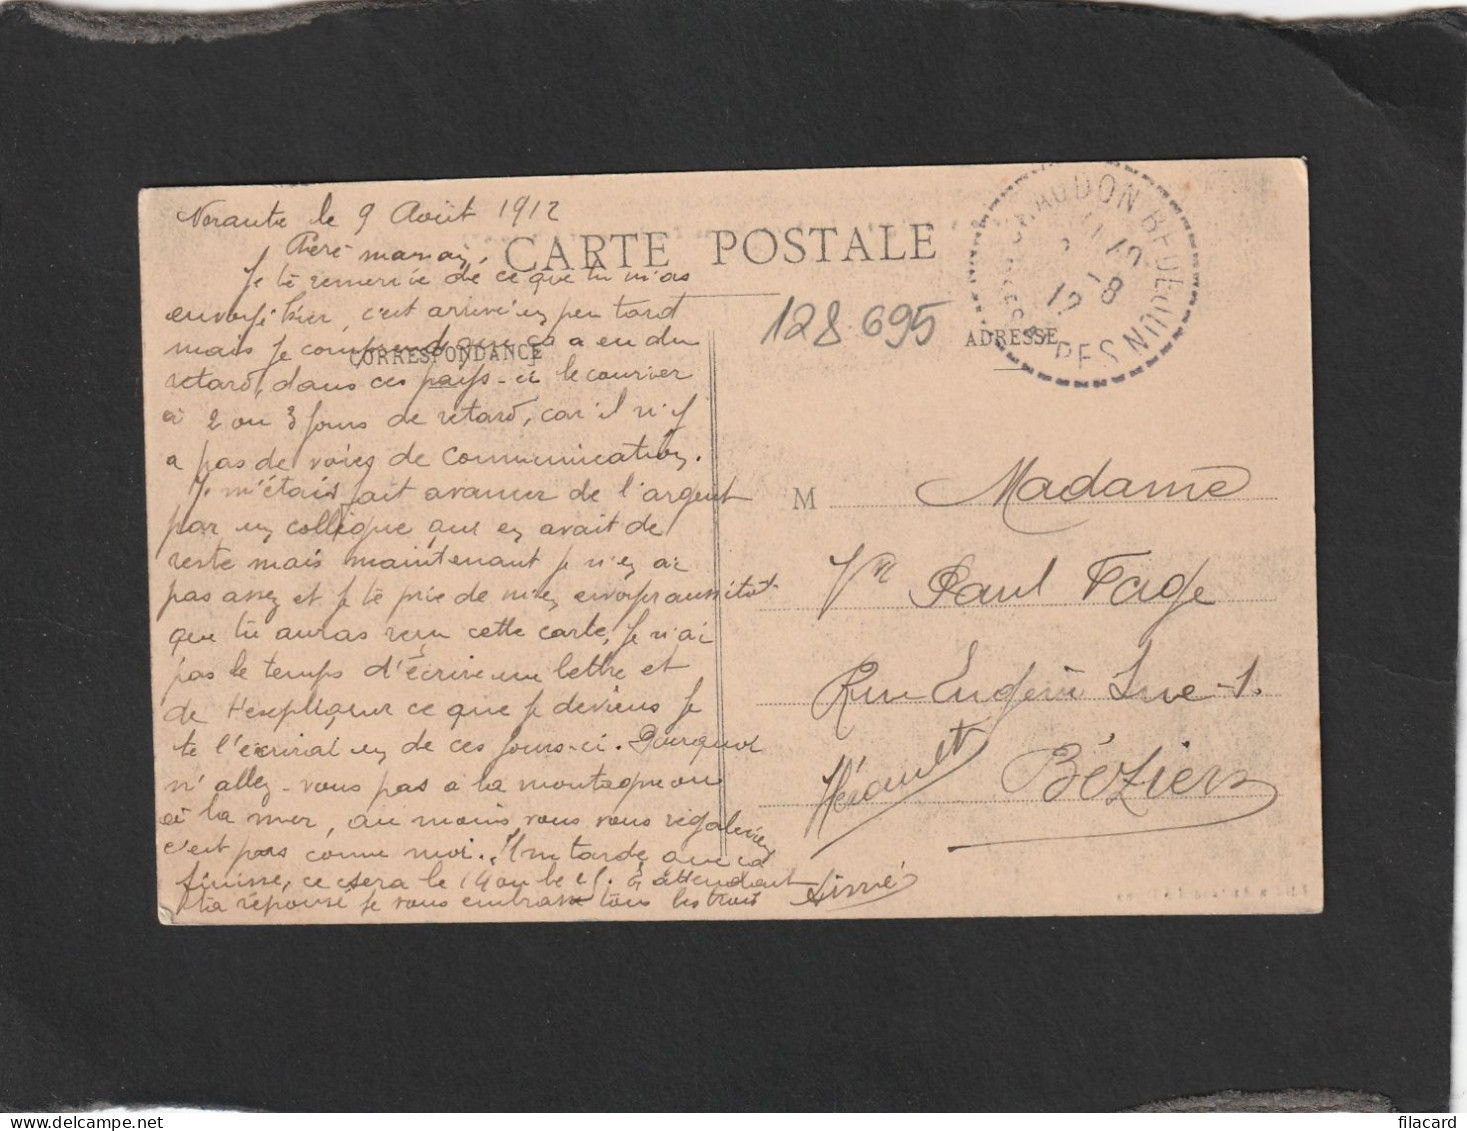 le 9 Août 1912
CARTE POSTALE
Je te remercie de ce que tu m'as
envoyé hier, c'est arrivé un peu tard
mais je comprend que ça a eu du
CORRESPONDANCE
retard, dans ces pays-ci le courrier
a 2 ou 3 jours de retard, car il n'y
a pas de voies de communication.
Je m'étais fait avancer de l'argent
par un collègue qui en avait de
reste mais maintenant je n'en ai
pas assez et je te prie de m'en envoyer aussitôt
que tu auras reçu cette carte, je n'ai
pas le temps d'écrire une lettre et
de t'expliquer ce que je deviens je
te l'écrirai un de ces jours-ci. Pourquoi
n'allez-vous pas à la montagne ou
à la mer, au moins vous vous
c'est pas comme moi. Il me tarde que ça
finisse, ce sera le 14 ou le 15. En attendant
ta réponse je vous embrasse tous les trois
128.695
ADRESSE
M Madame
Vve Paul Fage
Rue Eugène Sue-1.
Béziers
Hérault
filacard.com